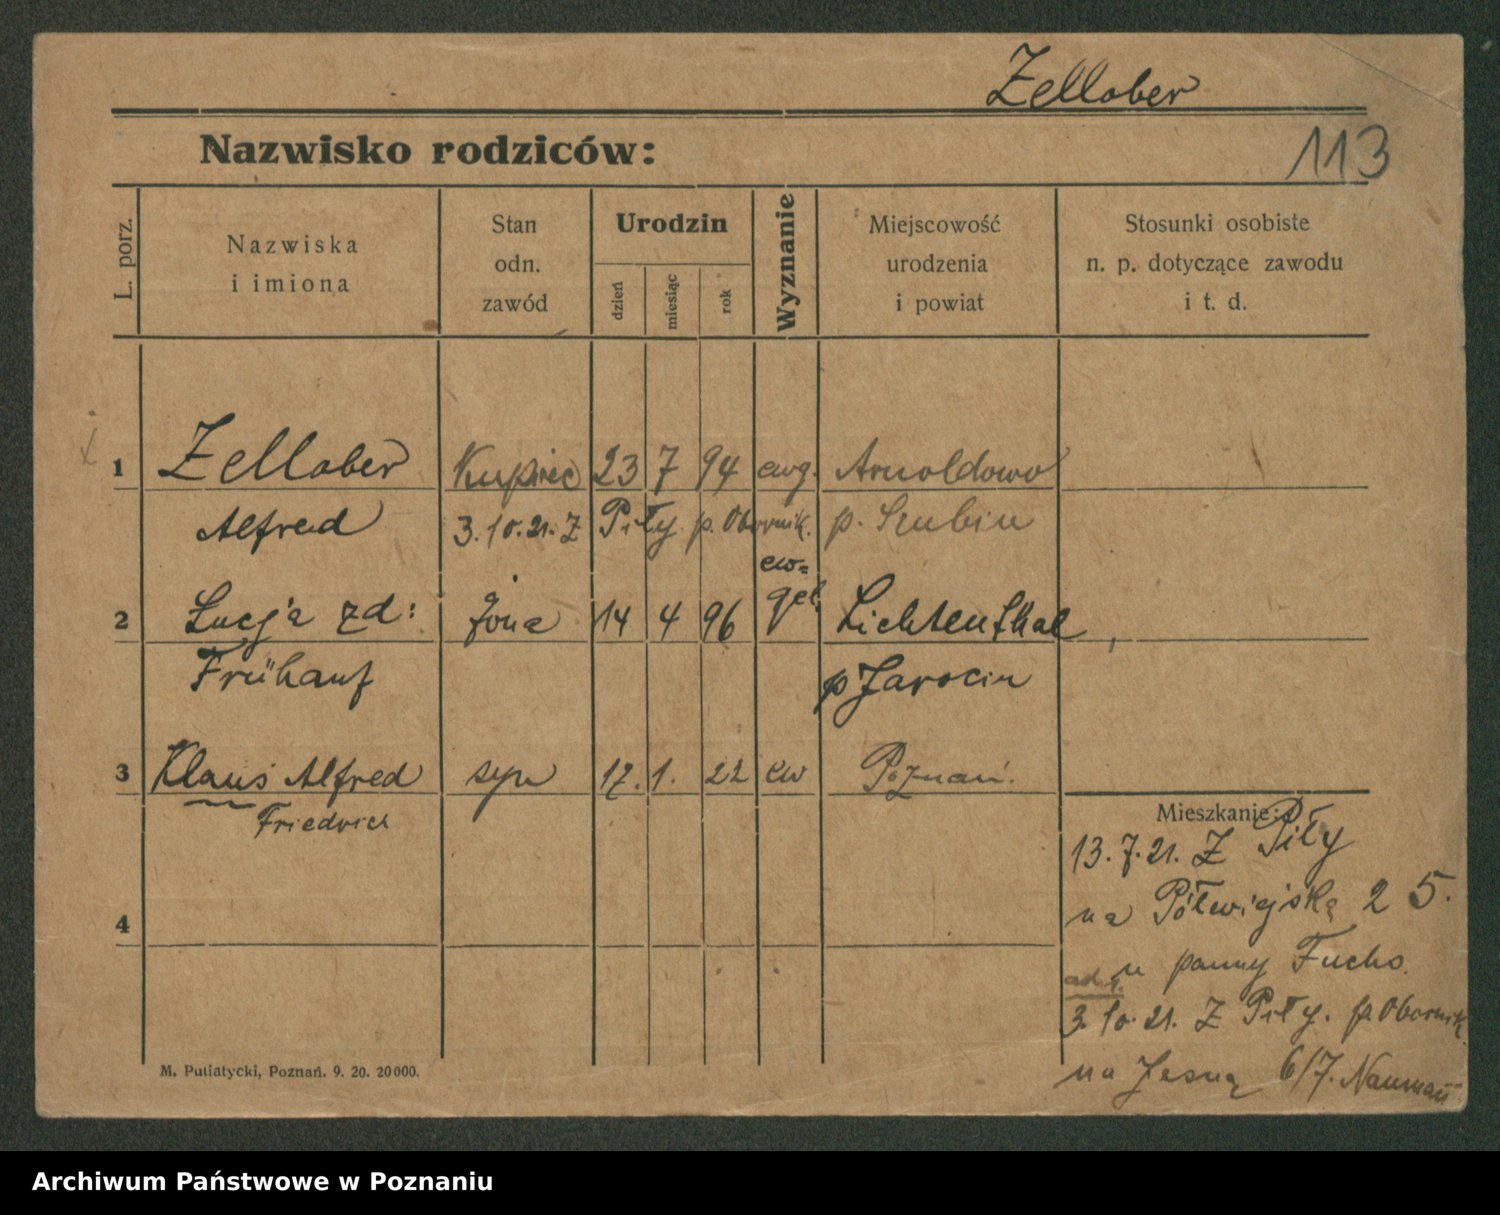 Zellober
Nazwisko rodziców:
113
L. porz.
Nazwiska
i imiona
Stan
odn.
zawód
Urodzin
dzień
miesiąc
rok
Wyznanie
Miejscowość
urodzenia
i powiat
Stosunki osobiste
n. p. dotyczące zawodu
i t. d.
1 Zellober Kupiec 23 7 94 ewg. Arnoldowo
Alfred 3.10.21. Z Piły p. Obornik. p. Szubin
ew=
2 Łucja zd: żona 14 4 96 gel. Lichtenthal
Frühauf p Jarocin
3 Klaus Alfred syn 17. 1. 22 ew Poznań.
Friedrich
Mieszkanie:
13.7.21. Z Piły
na Półwiejską 25.
4
u panny Fuchs.
ad 1.
3.10.21. Z Piły. p. Obornik
na Jasną 6/7. Naumann
M. Putiatycki, Poznań. 9. 20. 20000.
Archiwum Państwowe w Poznaniu